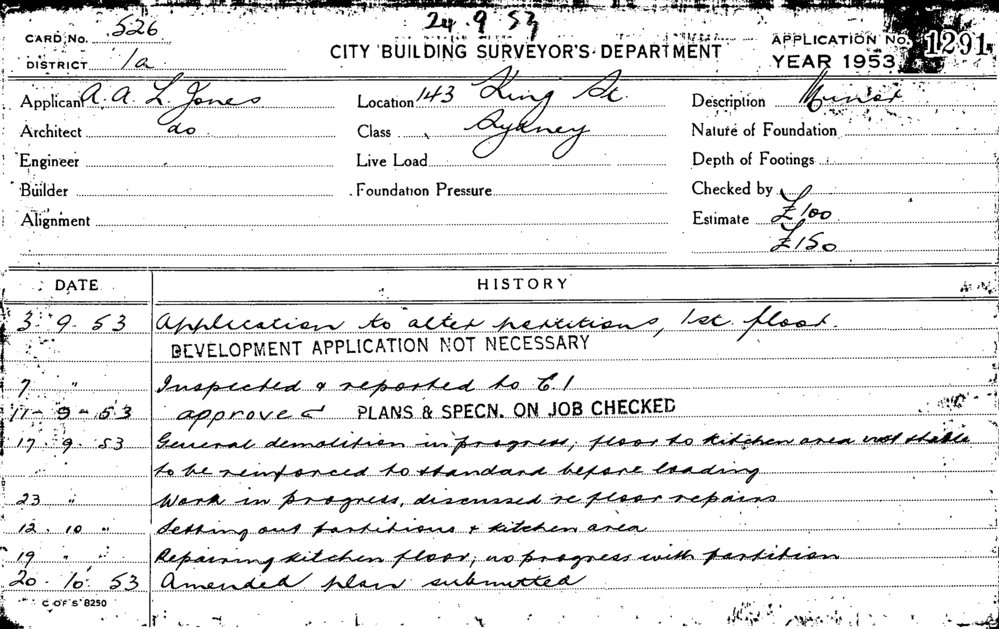 24 9 53
CARD No. 526
CITY BUILDING SURVEYOR'S DEPARTMENT
APPLICATION No. 1291
DISTRICT 1a
YEAR 1953
Applicant A. A. L Jones Location 143 King St Description Minor
Architect do Class Sydney Nature of Foundation
Engineer Live Load Depth of Footings
Builder Foundation Pressure Checked by
Alignment Estimate £100
£150
DATE HISTORY
3. 9. 53 Application to alter partitions, 1st. floor.
DEVELOPMENT APPLICATION NOT NECESSARY
7 " Inspected & reported to E1
11 - 9 - 53 approved PLANS & SPECN. ON JOB CHECKED
17. 9. 53 General demolition in progress, floor to kitchen area not stable
to be reinforced to standard before loading
23 " Work in progress, discussed re floor repairs
12. 10 " Setting out partitions & kitchen area
19 " " Repairing kitchen floor, no progress with partition
20. 10. 53 Amended plan submitted
C OF S 8250